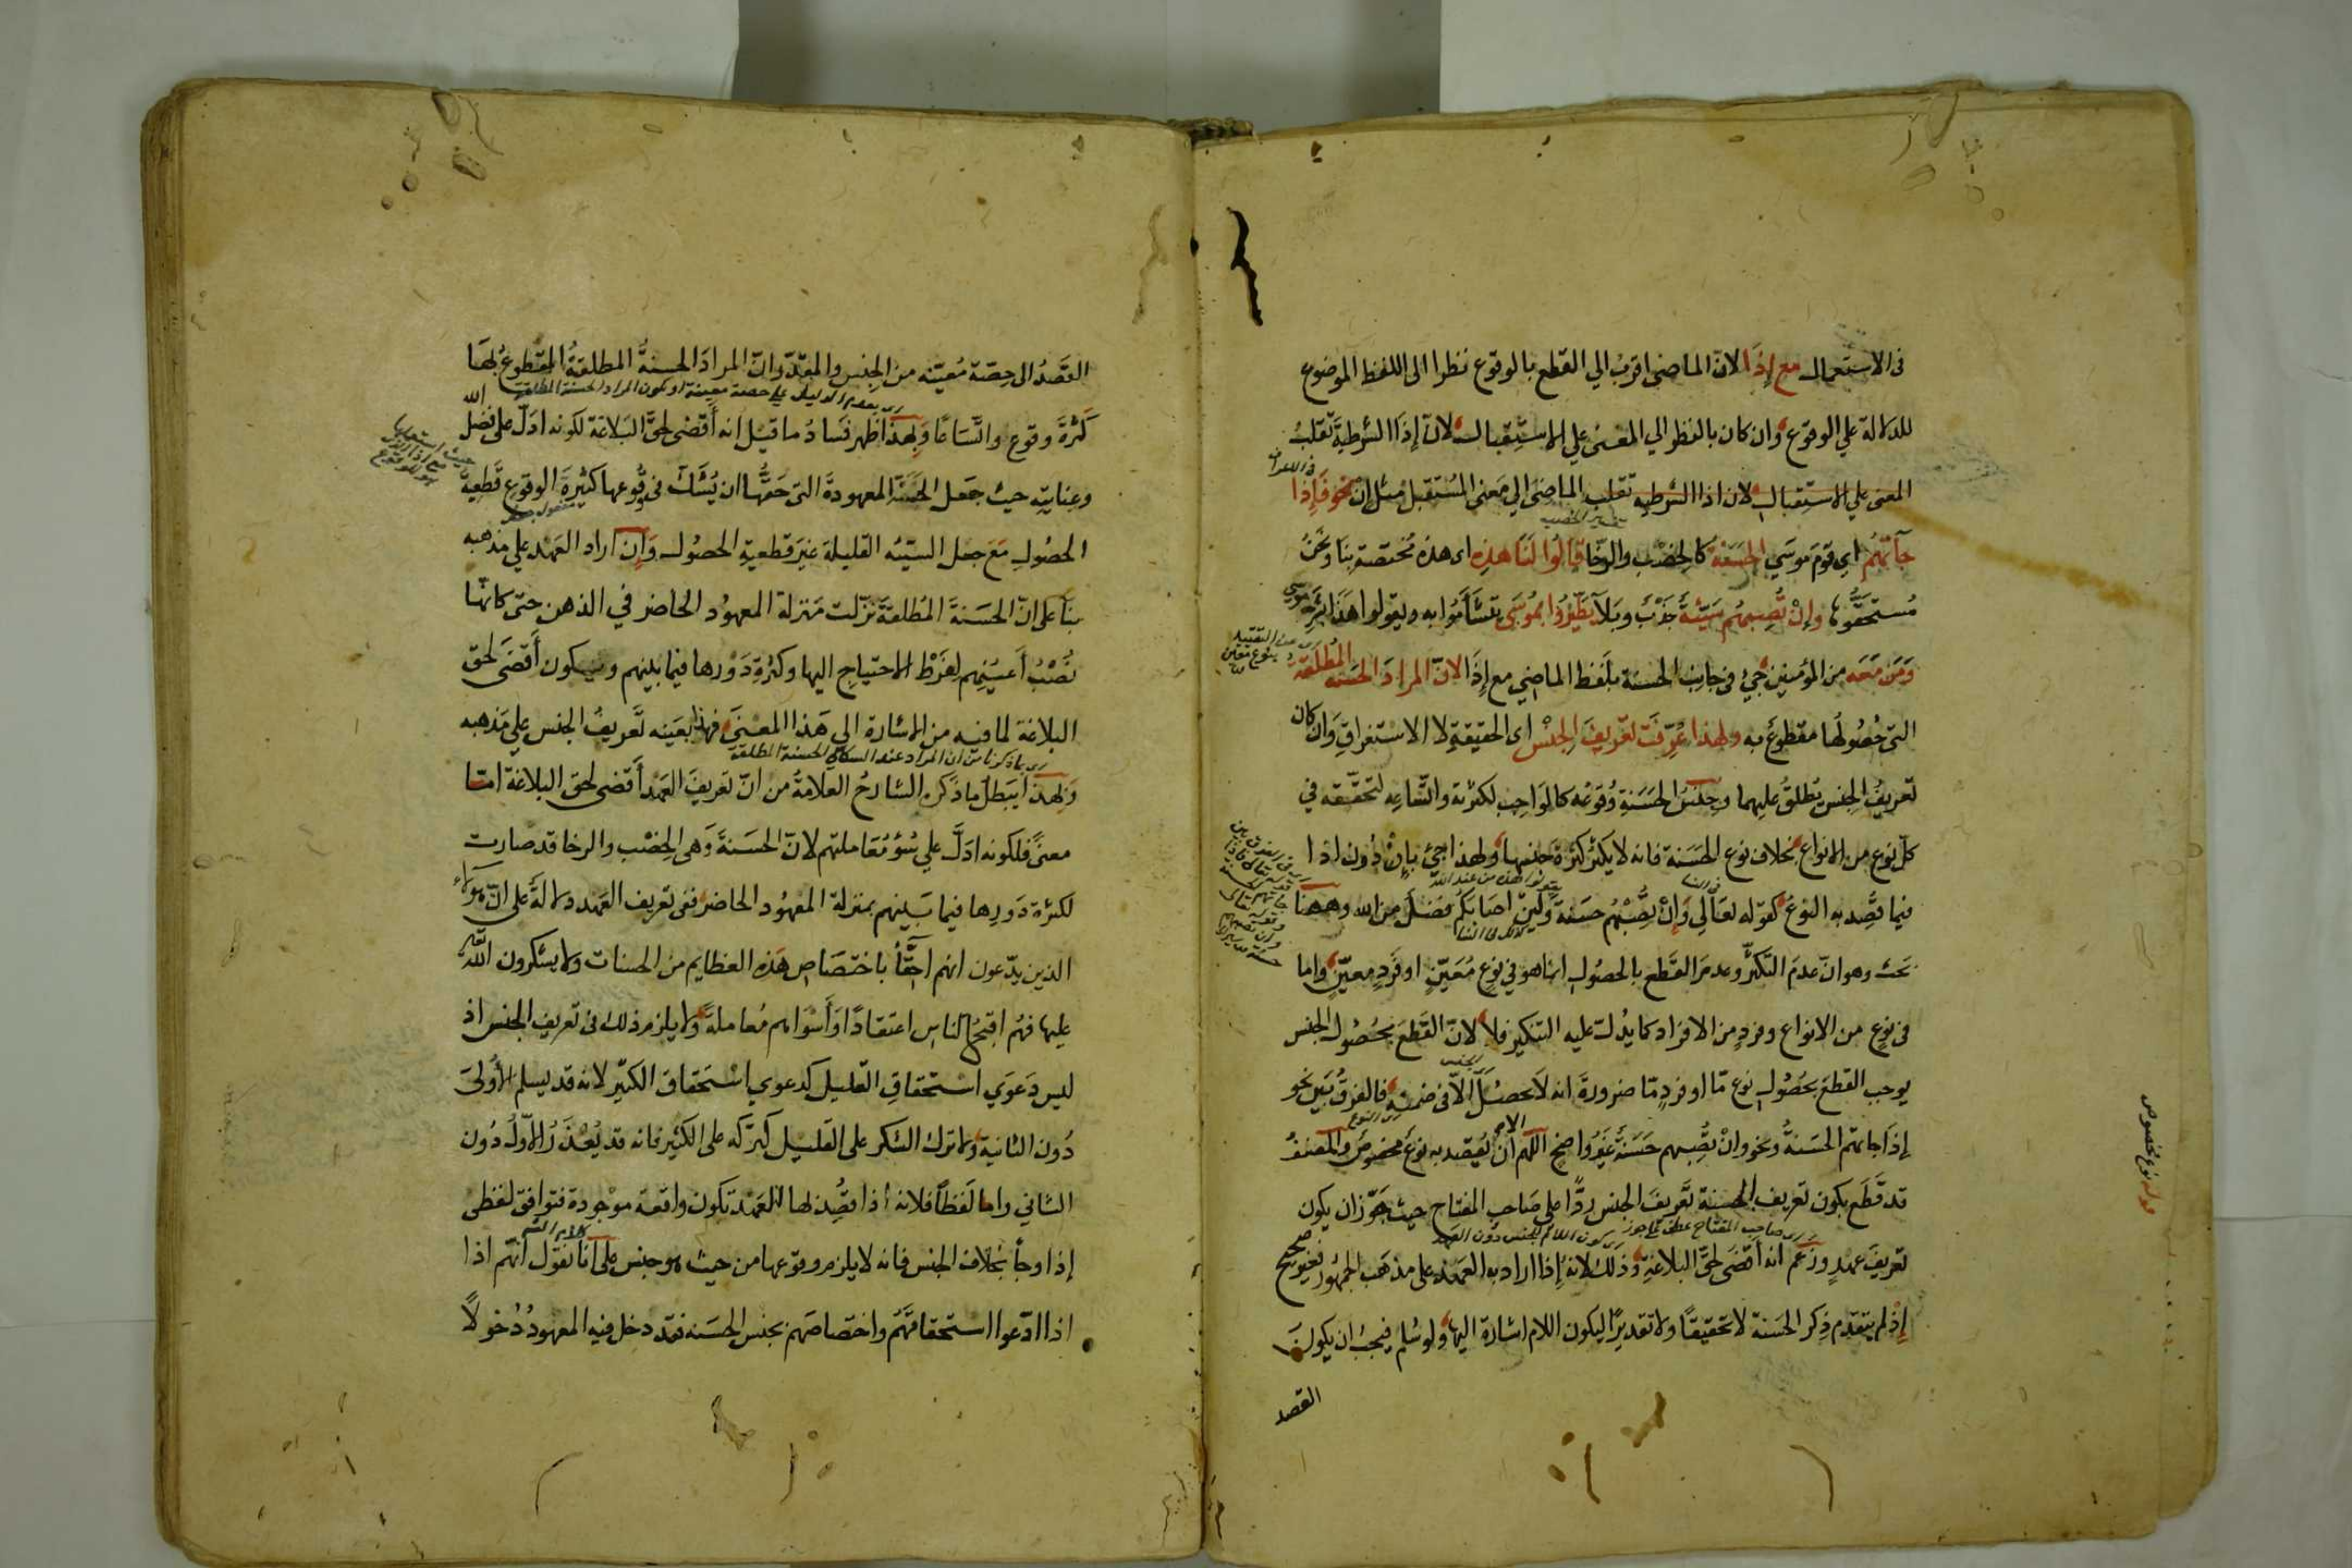 فى الاستعمال مع إذا لان الماضى اقرب الي القطع بالوقوع نظرا الى اللفظ الموضوع
للدلالة علي الوقوع وان كان بالنظر الي المعنى علي الاستقبال لان إذا الشرطية تقلب
المعنى علي الاستقبال لان اذا الشرطيه تقلب الماضى الي معنى المستقبل مثل إن نحو فإذا
جآءتهم اي قوم موسي الحسنة كالخصب والرخا قالوا لنا هذه اى هذه مختصة بنا ونحن
مستحقوها وإن تصبهم سيئة جدب وبلآ يطيروا بموسى تتشأموا به ويقولوا هذا بشر موسي
ومن معه من المؤمنين جئ فى جانب الحسنة بلفظ الماضي مع إذا لان المراد الحسنة المطلقة
التى حصولها مقطوع به ولهذا عرفت تعريف الجنس اى الحقيقة لا الاستغراق وان كان
تعريف الجنس يطلق عليهما وجنس الحسنة وقوعه كالواجب لكثرته واتساعه لتحققه في
كل نوع من الانواع بخلاف نوع الحسنة فانه لا يكثر كثرة جنسها ولهذا جئ بإن دون اذا
فيما قصد به النوع كقوله تعالي وإن تصبهم حسنة ولئن اصابكم فضل من الله وههنا
بحث وهو ان عدم التكثر وعدم القطع بالحصول انما هو في نوع معين او فرد معين واما
فى نوع من الانواع وفرد من الافراد كما يدل عليه التنكير فلا لان القطع بحصول الجنس
يوجب القطع بحصول نوع ما او فرد ما ضرورة انه لا يحصل الا فى ضمنه فالفرق بين نحو
إذا جاءتهم الحسنة ونحو وان تصبهم حسنة غير واضح اللهم الا ان يقصد به نوع مخصوص والمصنف
قد قطع بكون تعريف الحسنة تعريف الجنس ردا على صاحب المفتاح حيث جوز ان يكون
تعريف عهد وزعم انه أقضى لحق البلاغة وذلك لانه إذا اراد به العهد على مذهب الجمهور فغير صحيح
إذ لم يتقدم ذكر الحسنة لا تحقيقا ولا تقديرا ليكون اللام اشارة اليها ولو سلم فيجب ان يكون
القصد
قوله نوع مخصوص
القصد الى حصة معينه من الجنس والمقدر ان المراد الحسنة المطلقة المقطوع بها
كثرة وقوع واتساعا وبهذا ظهر فساد ما قيل انه أقضى لحق البلاغة لكونه ادل على فضل الله
وعنايته حيث جعل الحسنة المعهودة التى حقها ان يشك فى وقوعها كثيرة الوقوع قطعية
الحصول مع جعل السيئه القليلة غير قطعية الحصول وإن اراد العهد علي مذهبه
بنا على ان الحسنة المطلقة نزلت منزلة المعهود الحاضر في الذهن حتى كانها
نصب أعينهم لفرط الاحتياج اليها وكثرة دورها فيما بينهم وسيكون أقضى لحق
البلاغة لما فيه من الاشارة الي هذا المعنى فهذا بعينه تعريف الجنس علي مذهبه
اى بما ذكرنا من ان المراد عند السكاكي الحسنة المطلقة
ولهذا يبطل ما ذكره الشارح العلامة من ان تعريف العهد أقضى لحق البلاغة امتا
معنى فلكونه ادل علي سؤ معاملتهم لان الحسنة وهى الخصب والرخا قد صارت
لكثرة دورها فيما بينهم بمنزلة المعهود الحاضر ففى تعريف العهد دلالة على ان هولاء
الذين يدعون انهم احقا باختصاص هذه العظايم من الحسنات ولا يشكرون الله
عليها فهم اقبح الناس اعتقادا وأسواهم معاملة ولا يلزم ذلك فى تعريف الجنس اذ
ليس دعوي استحقاق القليل كدعوي استحقاق الكثير لانه قد يسلم الأولى
دون الثانية ولا ترك الشكر على القليل كتركه على الكثير فانه قد يعذر الاول دون
الثاني واما لفظا فلانه اذا قصد بها العهد تكون واقعة موجودة فتوافق لفظى
إذا وجأ بخلاف الجنس فانه لا يلزم وقوعها من حيث هو جنس على أنا نقول أنهم اذا
اذا ادعوا استحقاقهم واختصاصهم بجنس الحسنه فقد دخل فيه المعهود دخولا